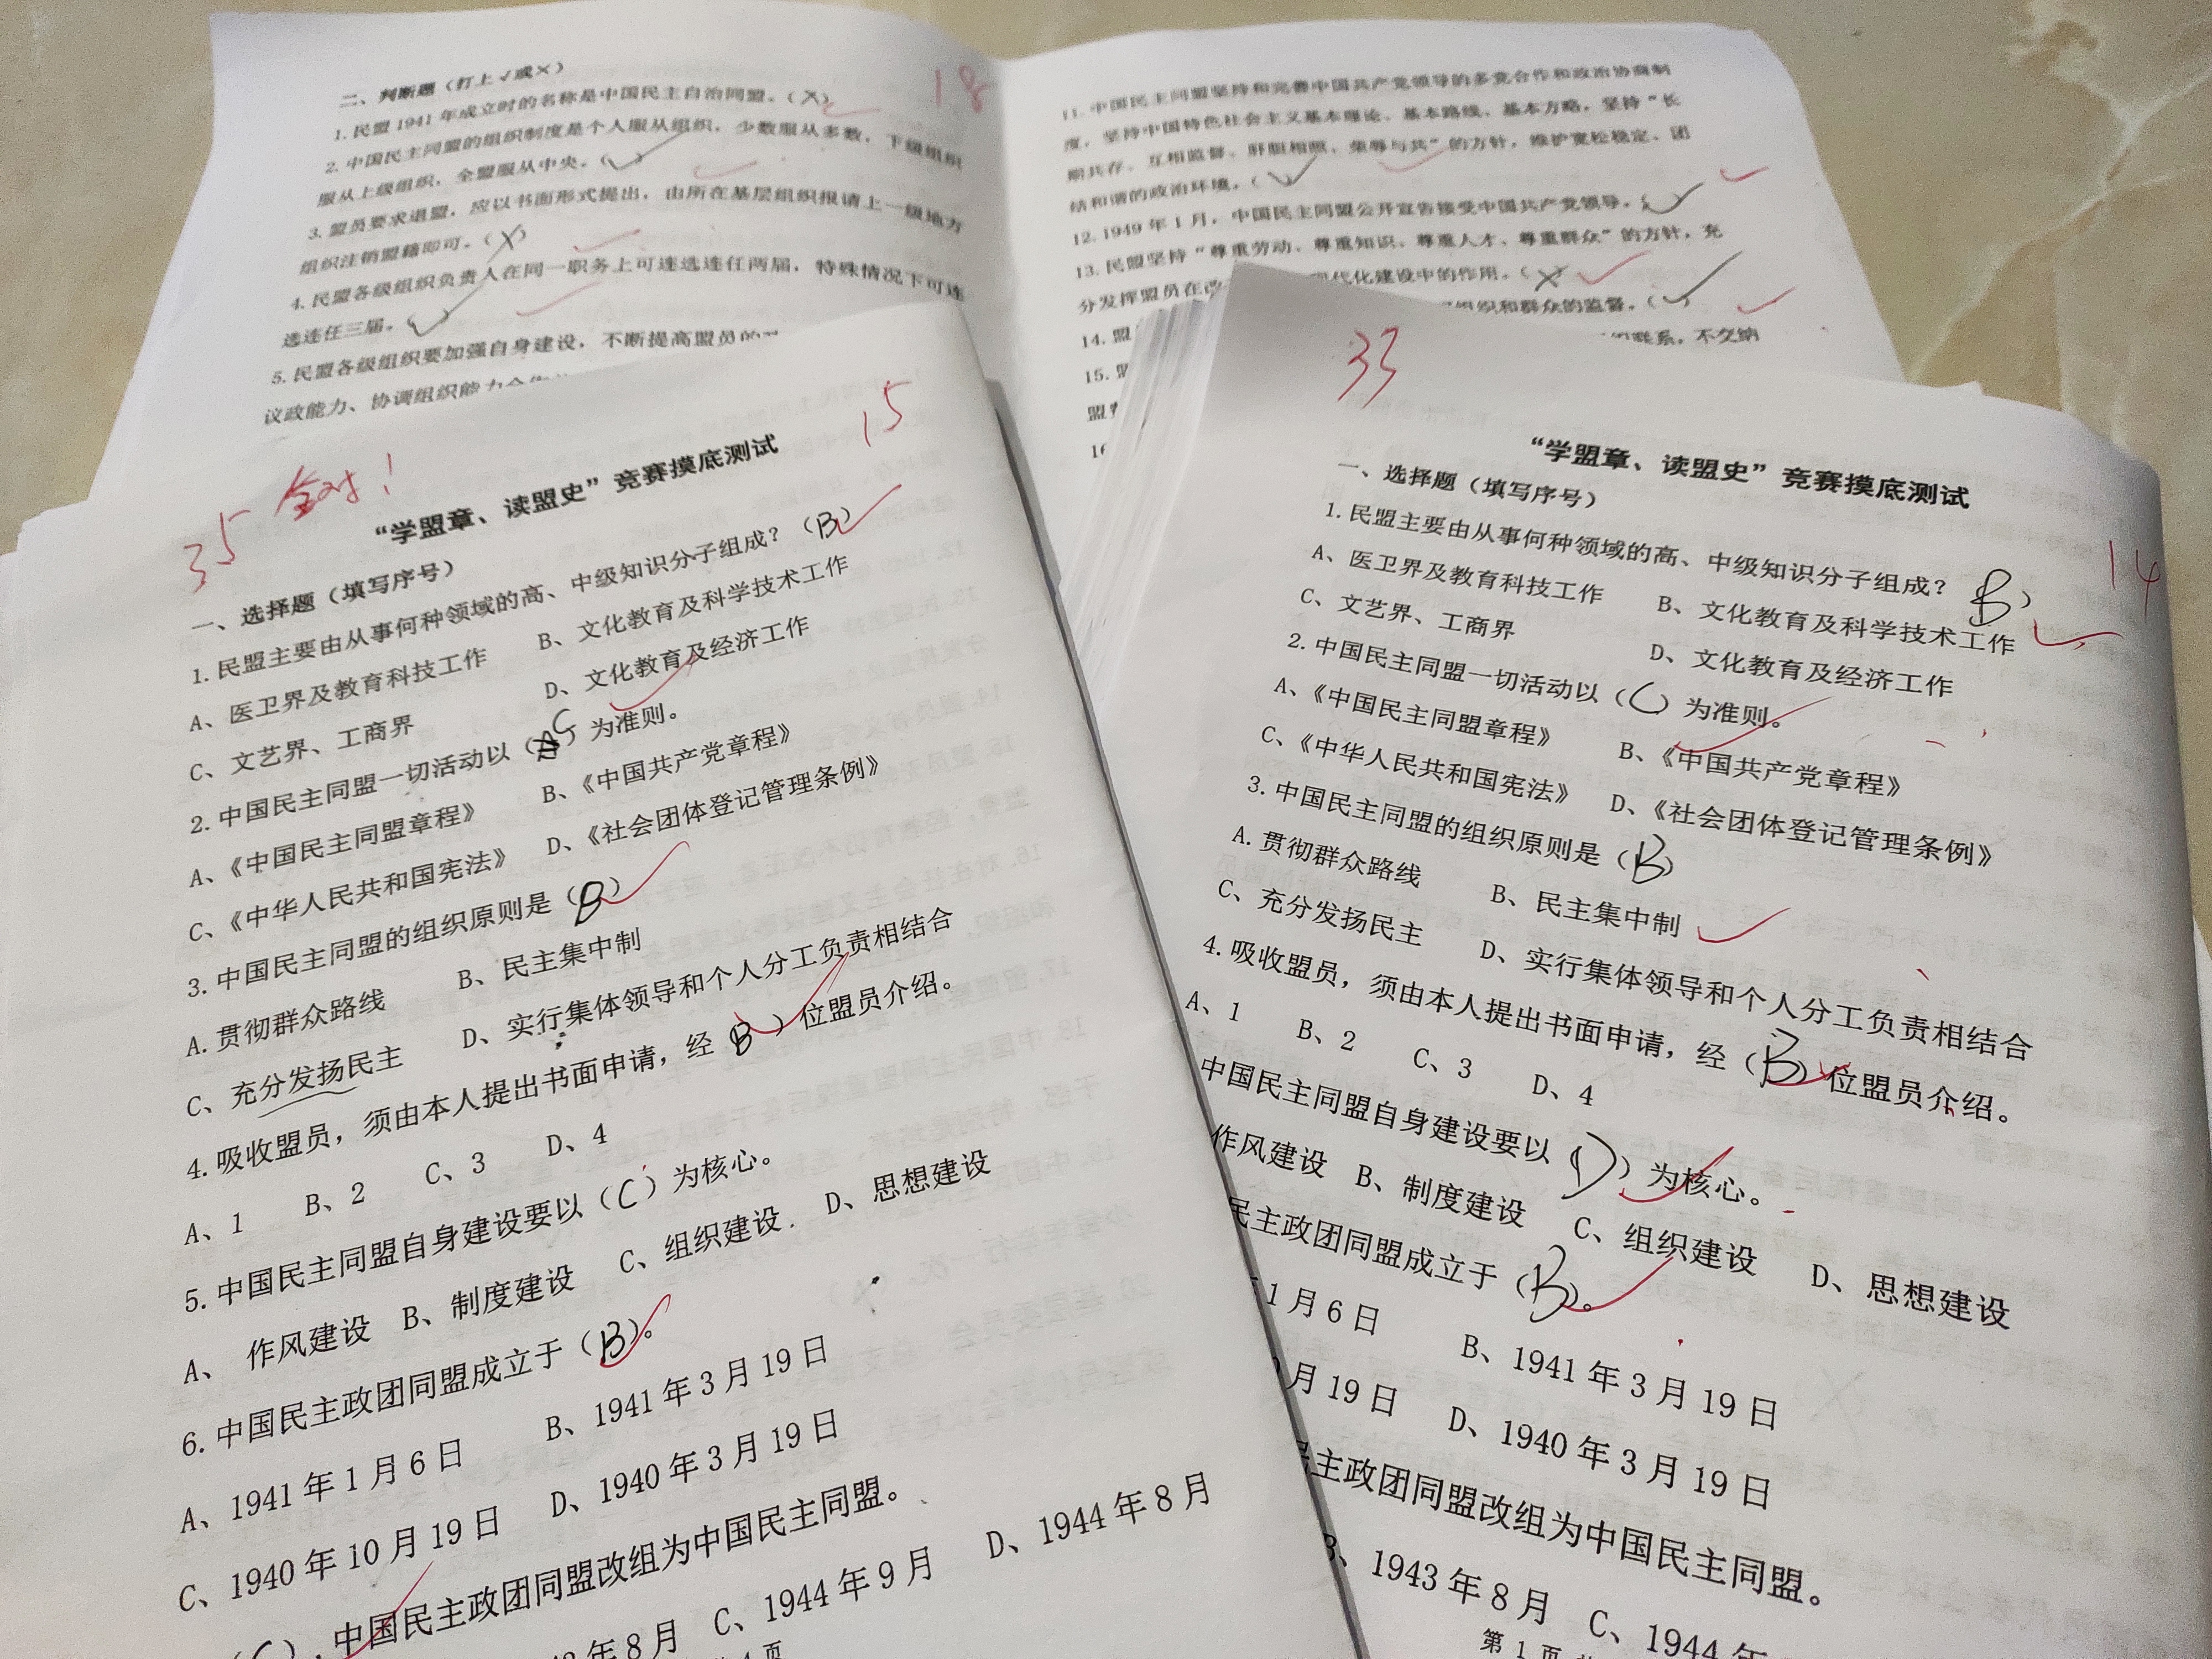 二、判断题（打上✓或×）
1. 民盟1941年成立时的名称是中国民主自治同盟。（X）
2. 中国民主同盟的组织制度是个人服从组织，少数服从多数，下级组织
服从上级组织，全盟服从中央。（✓）
3. 盟员要求退盟，应以书面形式提出，由所在基层组织报请上一级地方
组织注销盟籍即可。（X）
4. 民盟各级组织负责人在同一职务上可连选连任两届，特殊情况下可连
选连任三届。（✓）
5. 民盟各级组织要加强自身建设，不断提高盟员的
议政能力、协调组织能力
18
11. 中国民主同盟坚持和完善中国共产党领导的多党合作和政治协商制
度，坚持中国特色社会主义基本理论、基本路线、基本方略，坚持“长
期共存、互相监督、肝胆相照、荣辱与共”的方针，维护宽松稳定、团
结和谐的政治环境。（✓）
12. 1949年1月，中国民主同盟公开宣告接受中国共产党领导。（✓）
13. 民盟坚持“尊重劳动、尊重知识、尊重人才、尊重群众”的方针，充
分发挥盟员在改 现代化建设中的作用。（X）
14. 盟 组织和群众的监督。（✓）
15. 联系，不交纳
盟
16
35 全对！ 15
“学盟章、读盟史”竞赛摸底测试
一、选择题（填写序号）
1. 民盟主要由从事何种领域的高、中级知识分子组成？（B）
A、医卫界及教育科技工作 B、文化教育及科学技术工作
C、文艺界、工商界 D、文化教育及经济工作
2. 中国民主同盟一切活动以（C）为准则。
A、《中国民主同盟章程》 B、《中国共产党章程》
C、《中华人民共和国宪法》 D、《社会团体登记管理条例》
3. 中国民主同盟的组织原则是（B）
A. 贯彻群众路线 B、民主集中制
C、充分发扬民主 D、实行集体领导和个人分工负责相结合
4. 吸收盟员，须由本人提出书面申请，经（B）位盟员介绍。
A、1 B、2 C、3 D、4
5. 中国民主同盟自身建设要以（C）为核心。
A、 作风建设 B、制度建设 C、组织建设 D、思想建设
6. 中国民主政团同盟成立于（B）。
A、1941年1月6日 B、1941年3月19日
C、1940年10月19日 D、1940年3月19日
（C），中国民主政团同盟改组为中国民主同盟。
年8月 C、1944年9月 D、1944年8月
页
33
“学盟章、读盟史”竞赛摸底测试
14
一、选择题（填写序号）
1. 民盟主要由从事何种领域的高、中级知识分子组成？（B）
A、医卫界及教育科技工作 B、文化教育及科学技术工作
C、文艺界、工商界 D、文化教育及经济工作
2. 中国民主同盟一切活动以（C）为准则。
A、《中国民主同盟章程》 B、《中国共产党章程》
C、《中华人民共和国宪法》 D、《社会团体登记管理条例》
3. 中国民主同盟的组织原则是（B）
A. 贯彻群众路线 B、民主集中制
C、充分发扬民主 D、实行集体领导和个人分工负责相结合
4. 吸收盟员，须由本人提出书面申请，经（B）位盟员介绍。
A、1 B、2 C、3 D、4
中国民主同盟自身建设要以（D）为核心。
作风建设 B、制度建设 C、组织建设 D、思想建设
民主政团同盟成立于（B）。
1月6日 B、1941年3月19日
月19日 D、1940年3月19日
主政团同盟改组为中国民主同盟。
B、1943年8月 C、1944年
第 1 页